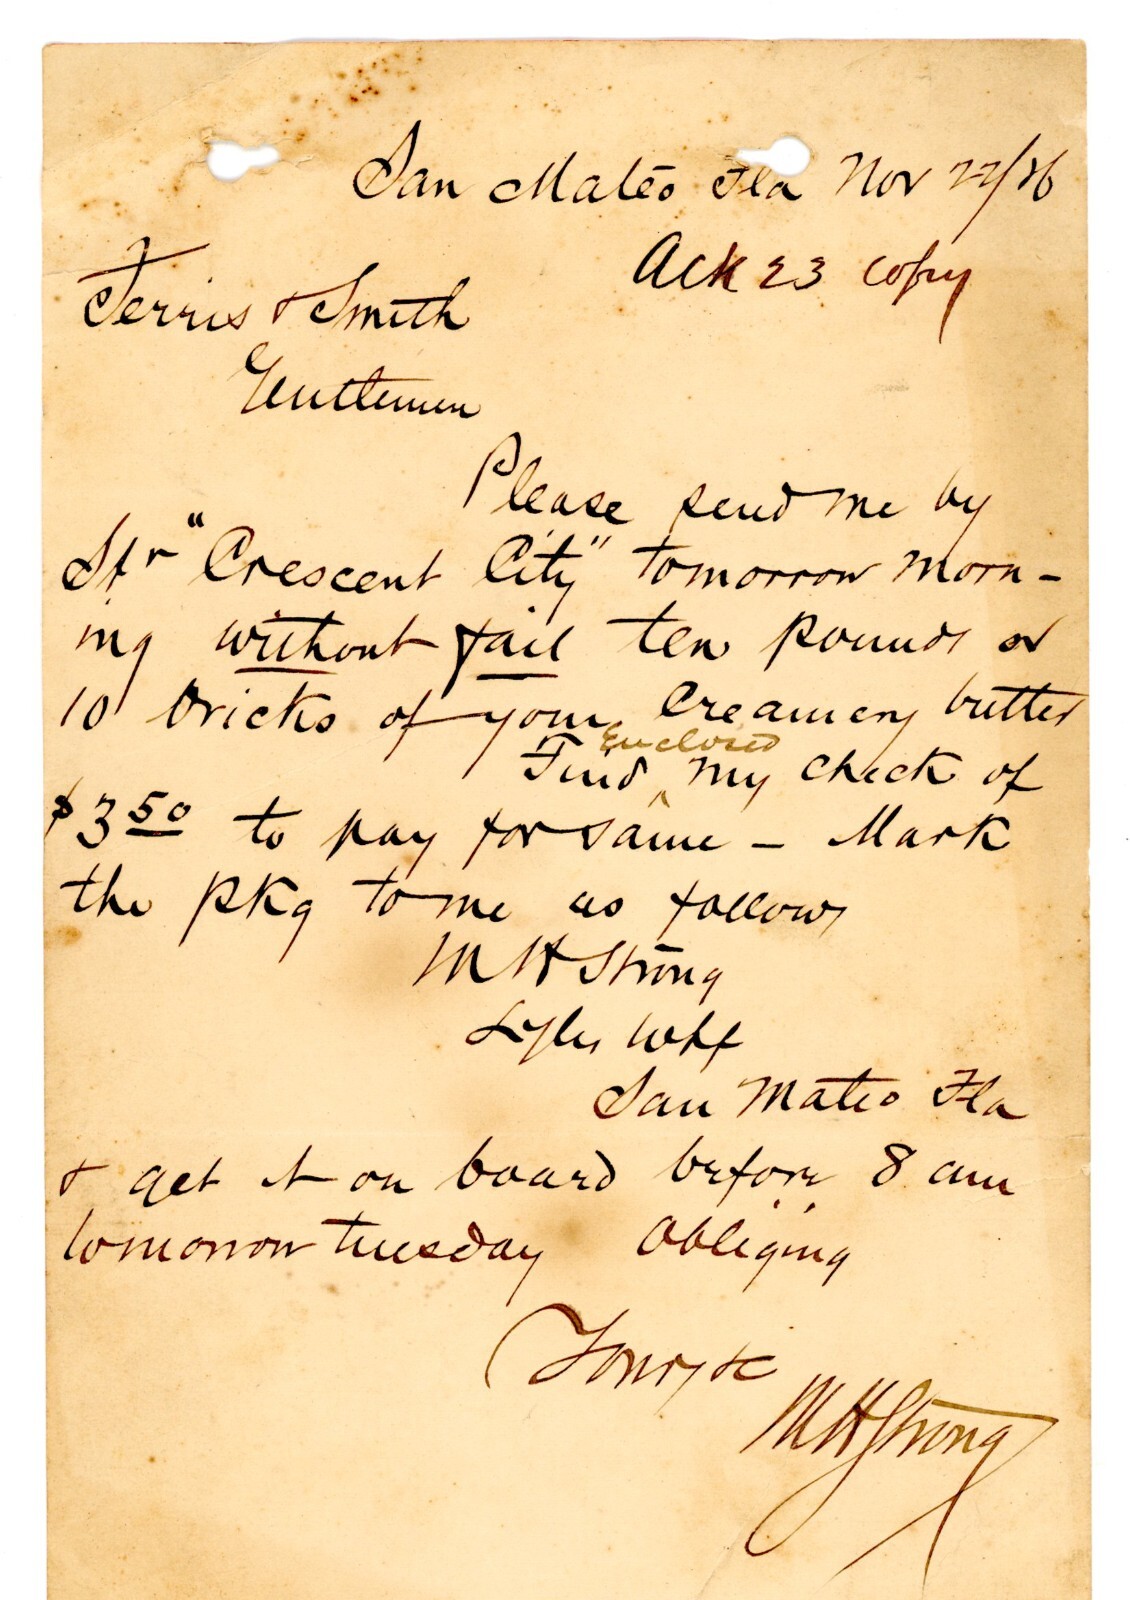 San Mateo Fla Nov 22/86
Ack 23 copy
Ferris & Smith
Gentlemen
Please send me by
Str "Crescent City" tomorrow morn-
ing without fail ten pounds or
10 bricks of your Creamery butter
Enclosed
Find ^ my check of
$3 50 to pay for same - Mark
the pkg to me as follows
M H Strong
Whf
San Mateo Fla
& get it on board before 8 am
tomorrow Tuesday obliging
Yours &c
M H Strong